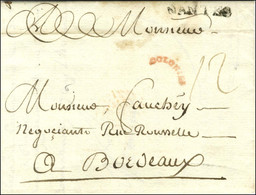 NANTES
A Monsieur
COLONIES
12
Monsieur Fauchéy
Negociante Rue Rousselle
A Bordeaux